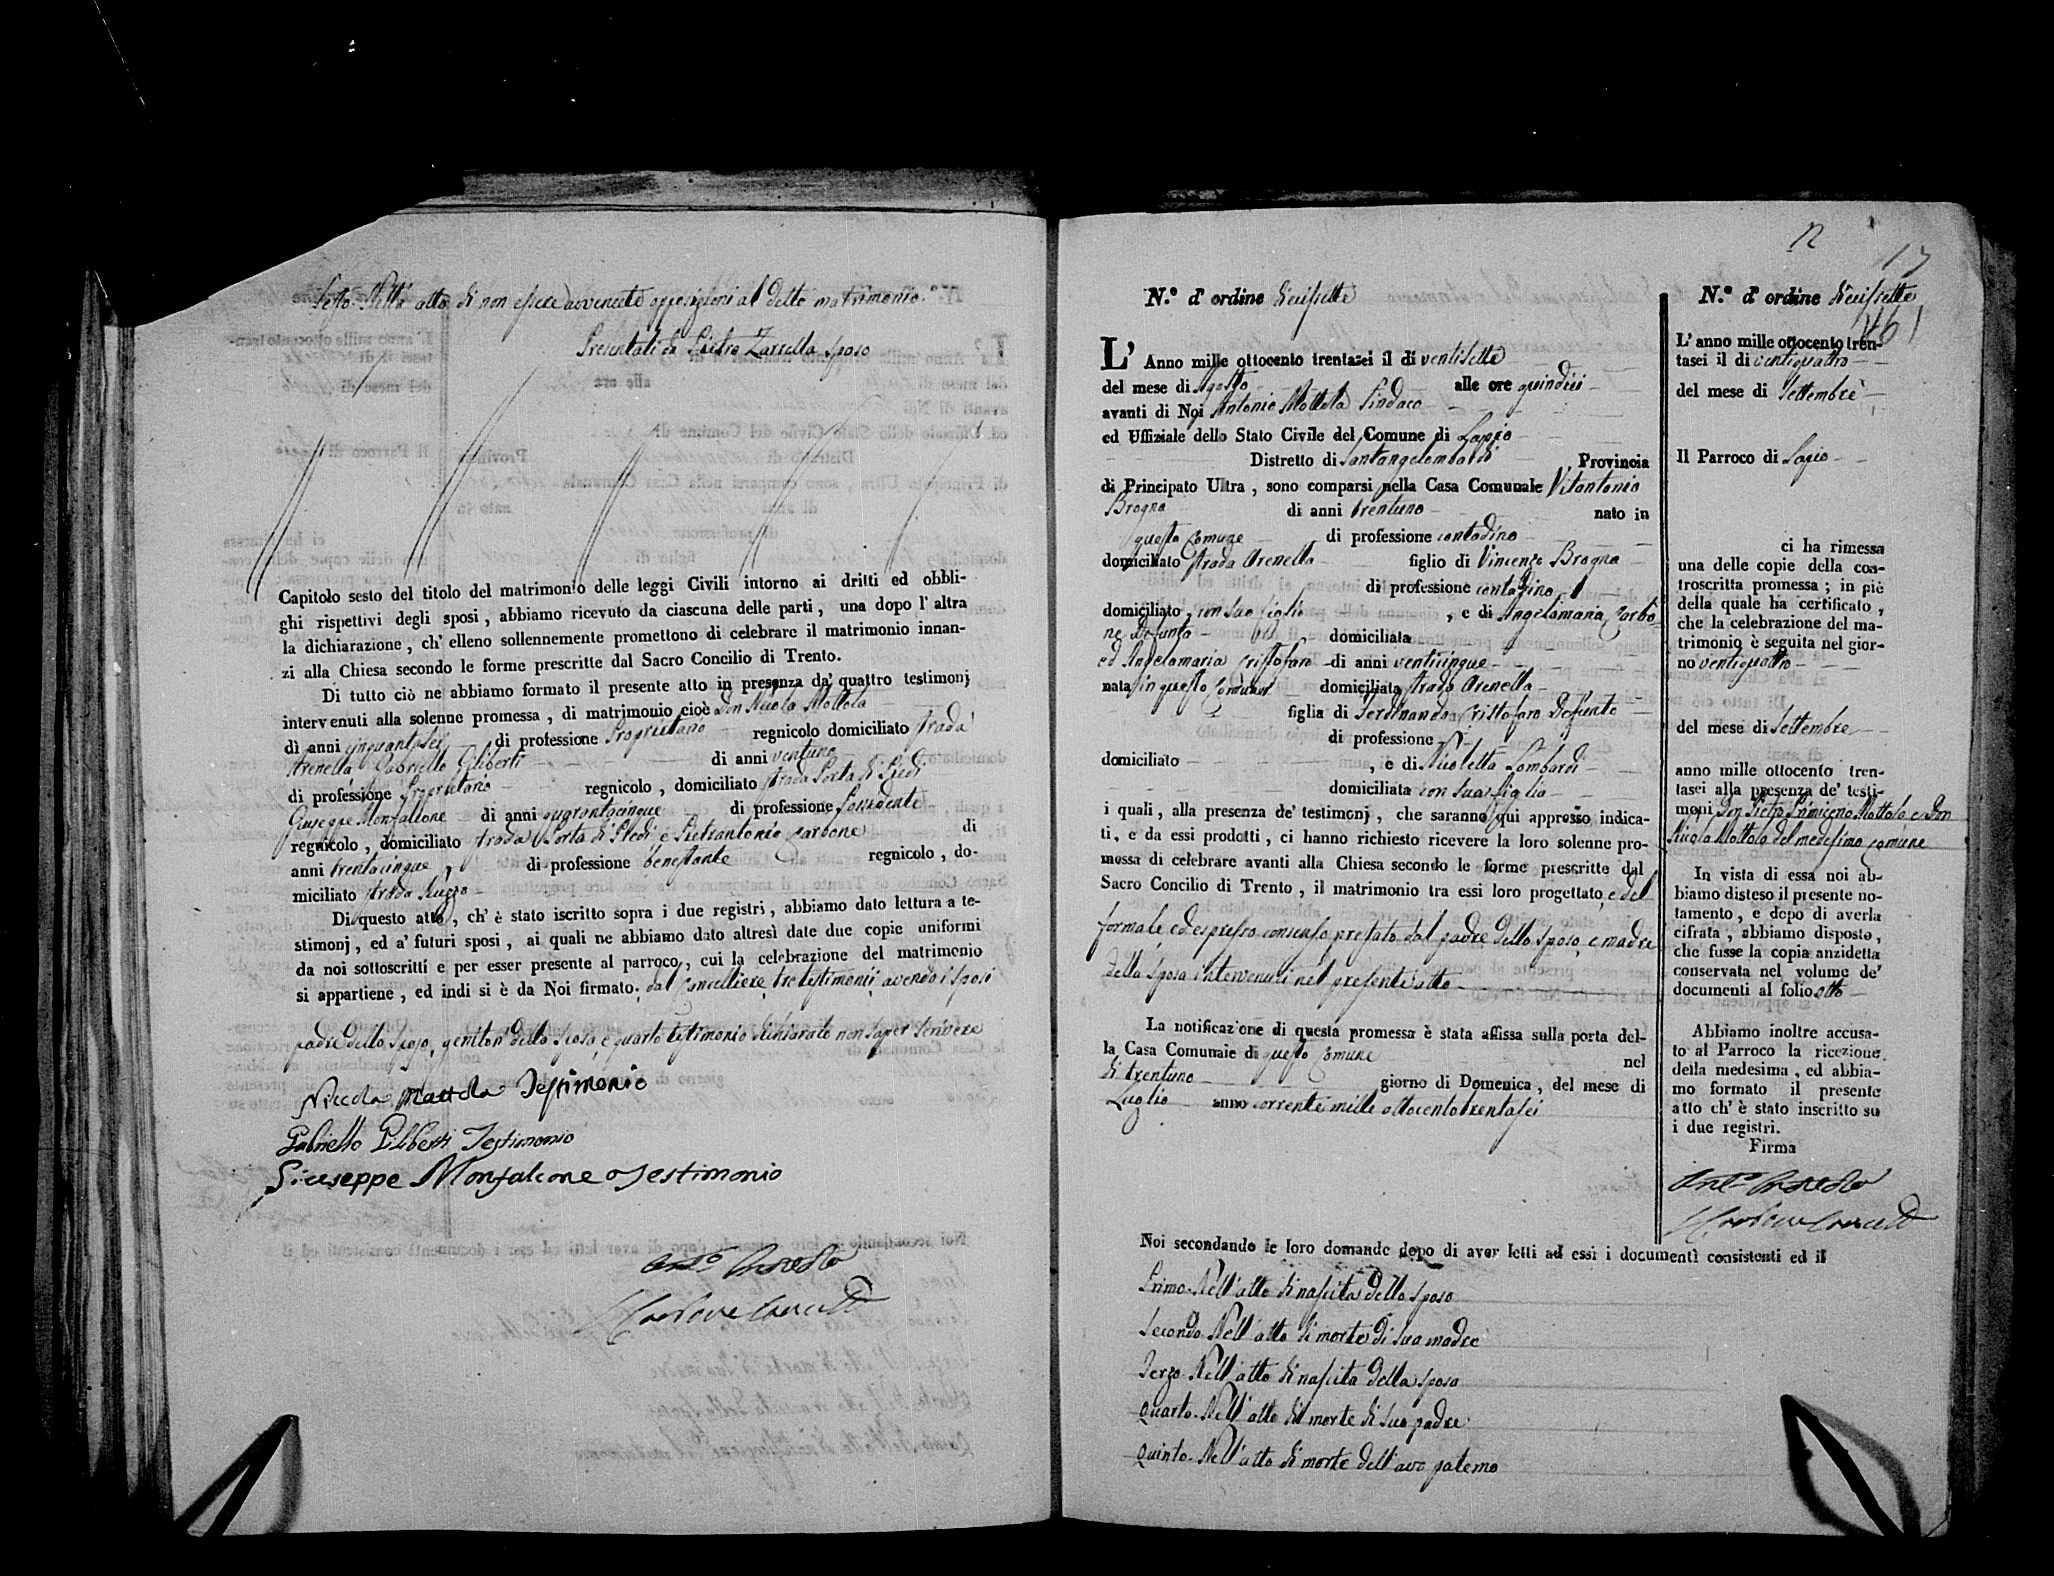 Sesto. Nell'atto di non essere avvenute opposizioni al detto matrimonio.
Presentati da Pietro Zarrella sposo
Capitolo sesto del titolo del matrimonio delle leggi Civili intorno ai dritti ed obbli-
ghi rispettivi degli sposi, abbiamo ricevuto da ciascuna delle parti, una dopo l'altra
la dichiarazione, ch'elleno sollennemente promettono di celebrare il matrimonio innan-
zi alla Chiesa secondo le forme prescritte dal Sacro Concilio di Trento.
Di tutto ciò ne abbiamo formato il presente atto in presenza da' quattro testimonj
intervenuti alla solenne promessa, di matrimonio cioè Don Nicola Mottola
di anni cinquantasei di professione Proprietario regnicolo domiciliato strada
Arenella Gabriello Giliberti di anni ventuno
di professione Proprietario regnicolo, domiciliato strada Porta di Piedi
Giuseppe Monfalcone di anni quarantacinque di professione Possidente
regnicolo, domiciliato strada Porta di Piedi e Pietrantonio Carbone di
anni trentacinque, di professione benestante regnicolo, do-
miciliato strada
Di questo atto, ch'è stato iscritto sopra i due registri, abbiamo dato lettura a te-
stimonj, ed a' futuri sposi, ai quali ne abbiamo dato altresì date due copie uniformi
da noi sottoscritti e per esser presente al parroco, cui la celebrazione del matrimonio
si appartiene, ed indi si è da Noi firmato. dal Cancelliere, tre testimonii avendo i sposi
padre dello sposo, genitori della sposa, e quarto testimonio dichiarato non saper scrivere
Nicola Mottola Testimonio
Gabriello Giliberti Testimonio
Giuseppe Monfalcone Testimonio
12
17
N.º d'ordine diecissette
L'Anno mille ottocento trentasei il dì ventisette
del mese di Agosto alle ore quindici
avanti di Noi Antonio Mottola Sindaco
ed Uffiziale dello Stato Civile del Comune di Lapio
Distretto di Santangelombardi Provincia
di Principato Ultra, sono comparsi nella Casa Comunale Vitantonio
Brogna di anni trentuno nato in
questo Comune di professione contadino
domiciliato strada Arenella figlio di Vincenzo Brogna
di professione contadino
domiciliato, con suo figlio, e di Angelamaria Carbo-
ne Defunta domiciliata
ed Angelamaria Cristofaro di anni venticinque
nata in questo Comune domiciliata strada Arenella
figlia di Ferdinando Cristofaro Defunto
di professione
domiciliato, e di Nicoletta Lombardi
domiciliata con sua figlia
i quali, alla presenza de' testimonj, che saranno qui appresso indica-
ti, e da essi prodotti, ci hanno richiesto ricevere la loro solenne pro-
messa di celebrare avanti alla Chiesa secondo le forme prescritte dal
Sacro Concilio di Trento, il matrimonio tra essi loro progettato, e del
formale, ed espresso consenso prestato dal padre dello sposo, e madre
della sposa intervenuti nel presente atto
La notificazione di questa promessa è stata affissa sulla porta del-
la Casa Comunale di questo Comune nel
dì trentuno giorno di Domenica, del mese di
Luglio anno corrente mille ottocento trentasei
Noi secondando le loro domande dopo di aver letti ad essi i documenti consistenti ed il
Primo. Nell'atto di nascita dello sposo
Secondo. Nell'atto di morte di sua madre
Terzo. Nell'atto di nascita della sposa
Quarto. Nell'atto di morte di suo padre
Quinto. Nell'atto di morte dell'avo paterno
N.º d'ordine diecissette
L'anno mille ottocento tren-
tasei il dì ventiquattro
del mese di Settembre
Il Parroco di Lapio
ci ha rimessa
una delle copie della con-
troscritta promessa; in piè
della quale ha certificato,
che la celebrazione del ma-
trimonio è seguita nel gior-
no ventiquattro
del mese di Settembre
anno mille ottocento tren-
tasei alla presenza de' testi-
monj Don Pietro Primiceno Mottola e Don
Nicola Mottola del medesimo Comune
In vista di essa noi ab-
biamo disteso il presente no-
tamento, e dopo di averla
cifrata, abbiamo disposto,
che fusse la copia anzidetta
conservata nel volume de'
documenti al folio otto
Abbiamo inoltre accusa-
to al Parroco la ricezione
della medesima, ed abbia-
mo formato il presente
atto ch'è stato inscritto su
i due registri.
Firma